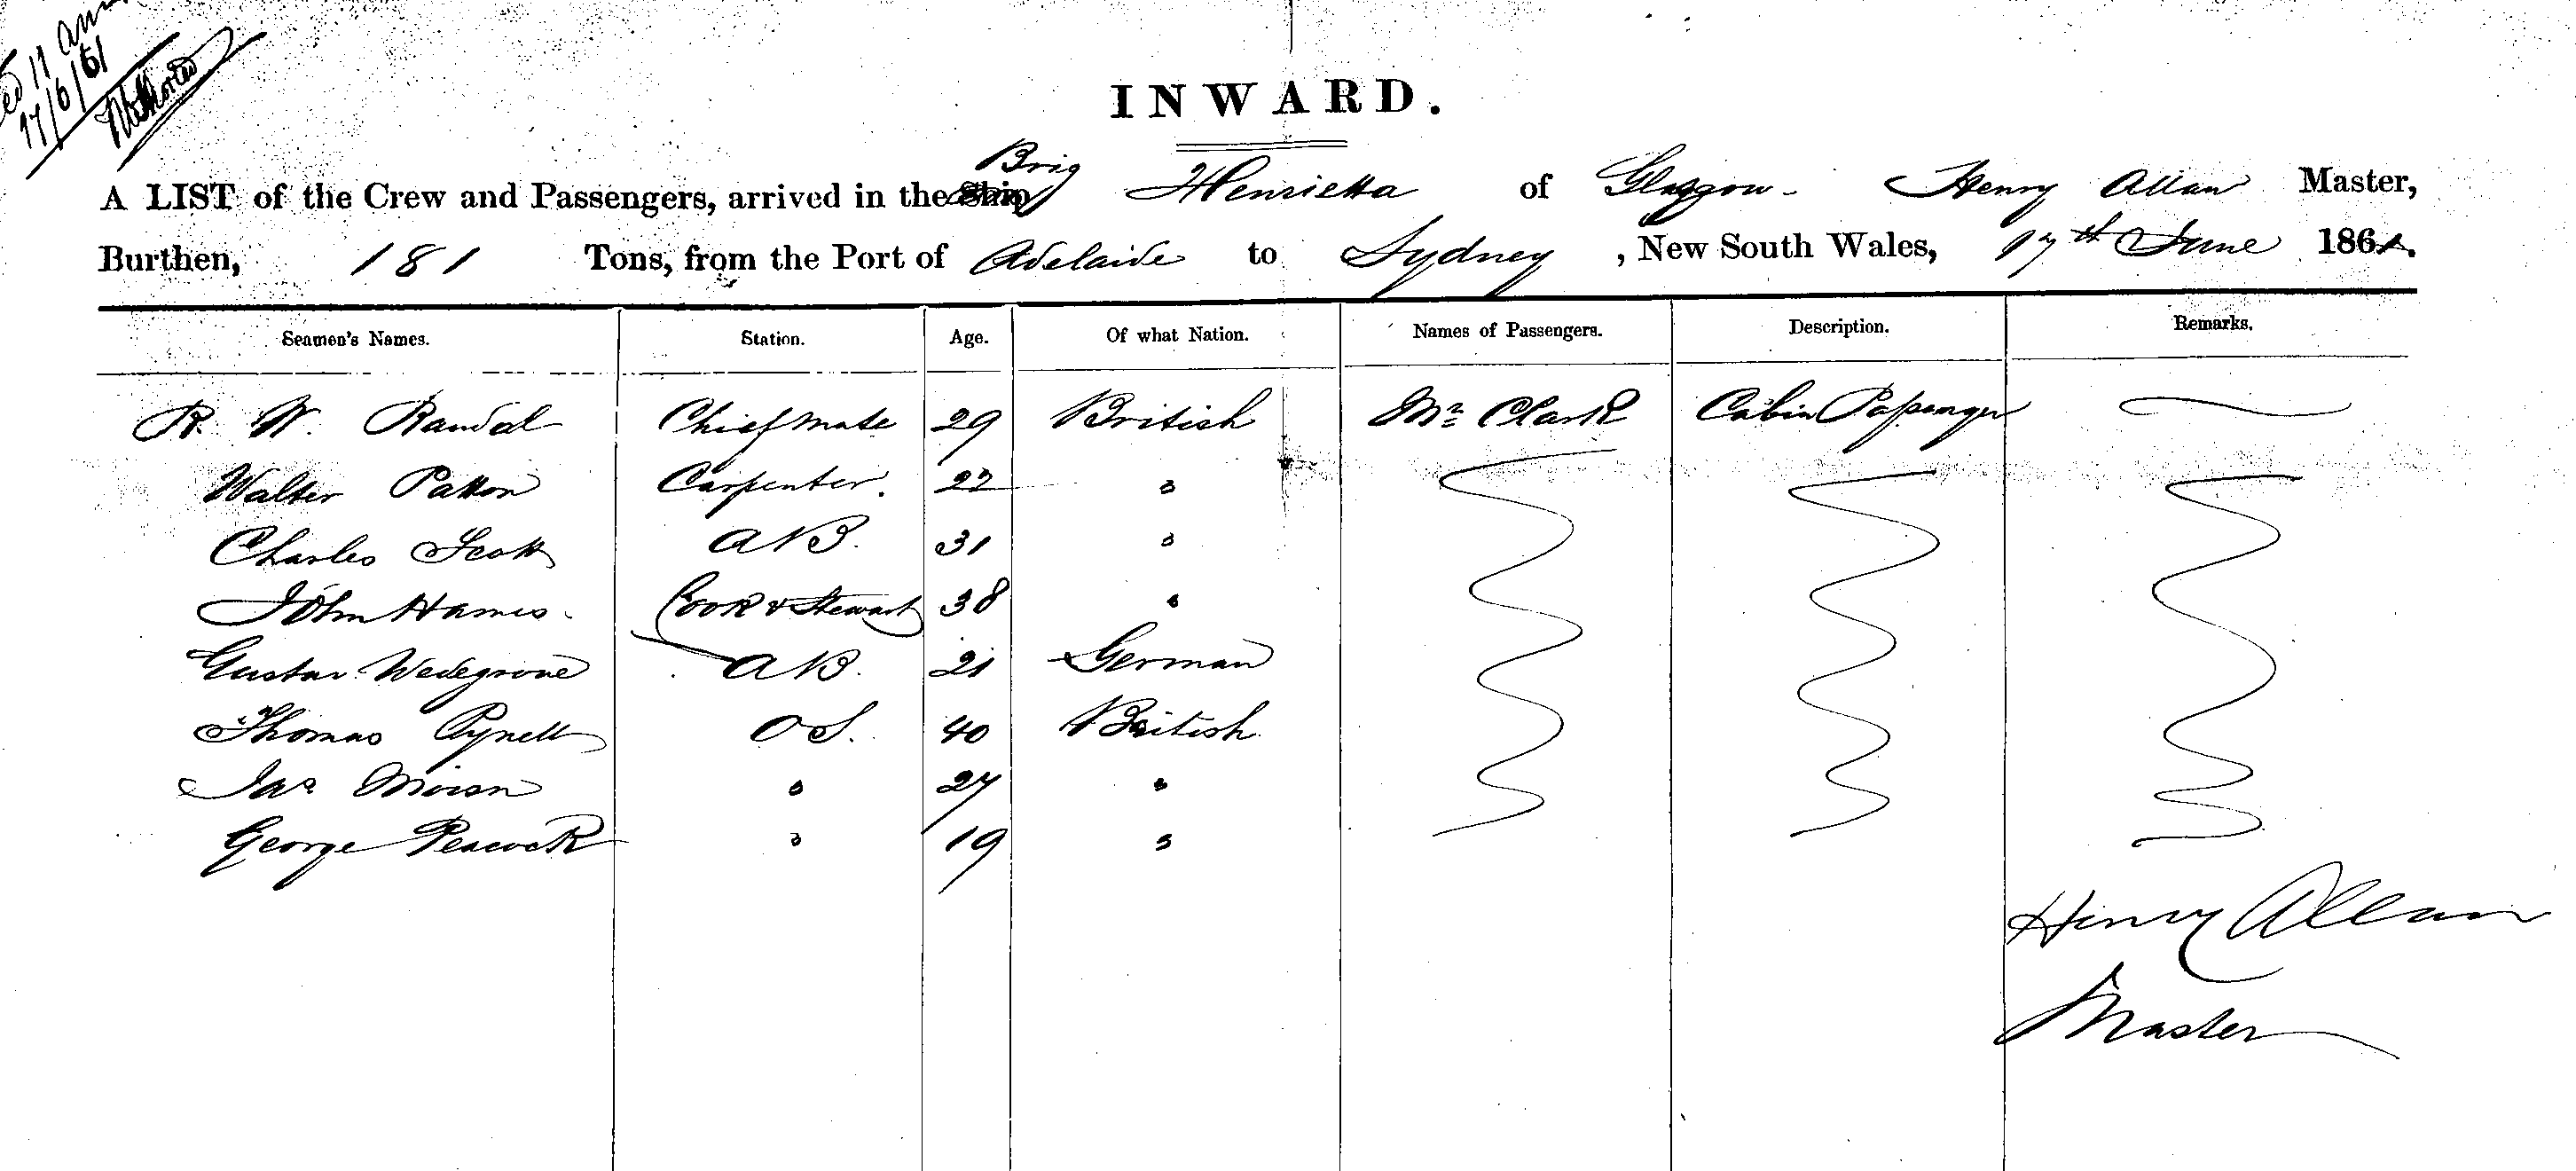 11 am
17/6/61
INWARD.
Brig
A LIST of the Crew and Passengers, arrived in the Ship Henrietta of Glasgow - Henry Allan Master,
Burthen, 181 Tons, from the Port of Adelaide to Sydney, New South Wales, 17th June 1861.
Seamen's Names. Station. Age. Of what Nation. Names of Passengers. Description. Remarks.
R. W. Randal Chief Mate 29 British Mr Clark Cabin Passenger
Walter Patton Carpenter. 22 "
Charles Scott AB. 31 "
John Hames. Cook & Stewart 38 "
Gustav Wedegrove AB. 21 German
Thomas Pynell OS. 40 British
Jas 27 "
George Peacock " 19 "
Henry Allan
Master